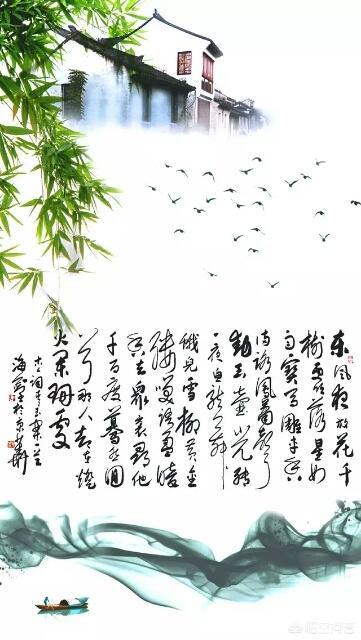 东风夜放花千
树更吹落星如
雨宝马雕车香
满路凤箫声
动玉壶光转
一夜鱼龙舞
蛾儿雪柳黄金
缕笑语盈盈暗
香去众里寻他
千百度蓦然回
首那人却在灯
火阑珊处
悟空问答